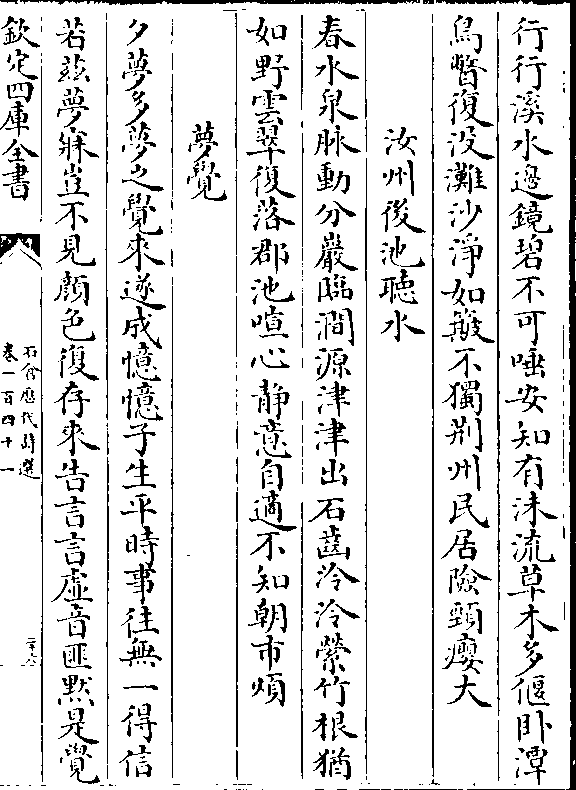 行行溪水邊鏡碧不可唾安知有沫流草木多偃卧潭
鳥瞥復没灘沙淨如簸不獨荆州民居險頸癭大
汝州後池聽水
春水泉脉動分巖臨澗源津津出石齒泠泠縈竹根猶
如野雲翠復落郡池喧心静意自適不知朝市煩
夢覺
夕夢多夢之覺來遂成憶憶子生平時事往無一得信
若茲夢寐豈不見顔色復存來告言言虚音匪黙是覺
欽定四庫全書
石倉歴代詩選
卷一百四十一